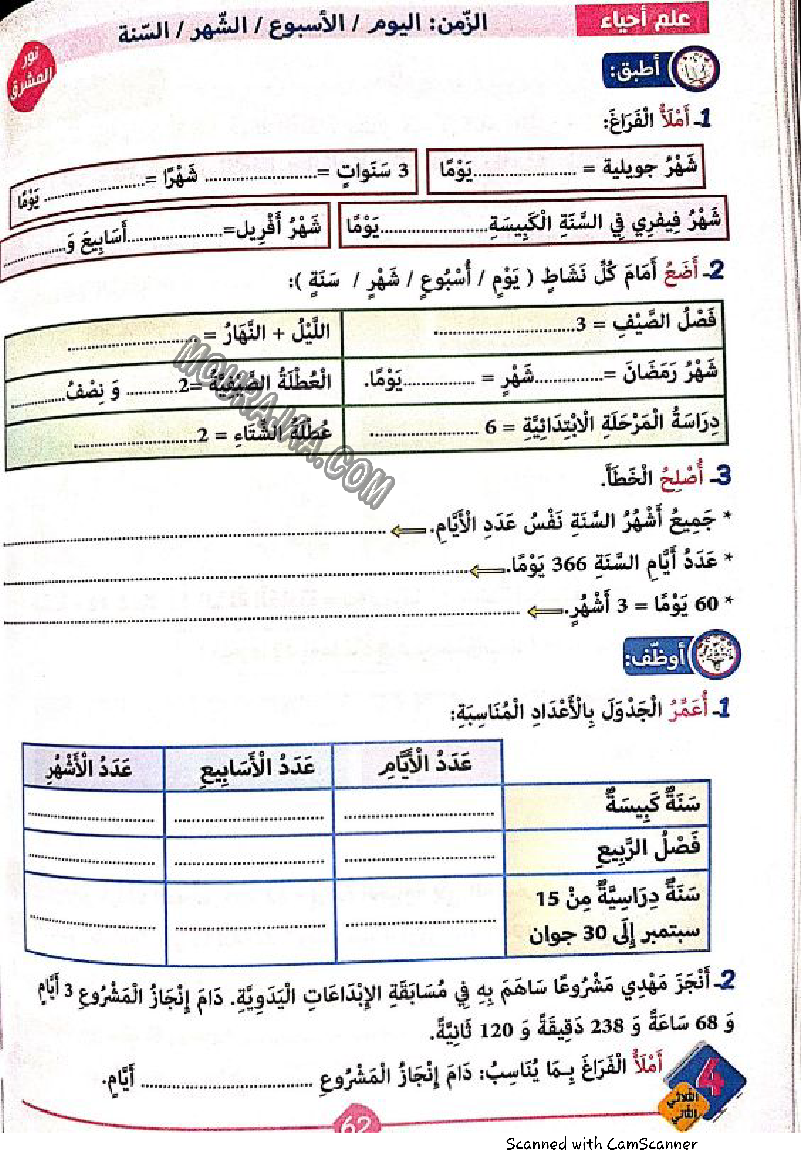 علم أحياء
الزّمن: اليوم / الأسبوع / الشّهر / السّنة
نور المشرق
أطبق:
1ـ أَمْلَأُ الْفَرَاغَ:
شَهْرُ جويلية = ......................يَوْمًا
3 سَنَوَاتٍ =........................ شَهْرًا =...................... يَوْمًا
شَهْرُ فِيفري فِي السَّنَةِ الْكَبِيسَةِ.......................يَوْمًا
شَهْرُ أَفْرِيل=....................أَسَابِيعَ وَ..............
2ـ أَضَعُ أَمَامَ كُلِّ نَشَاطٍ ( يَوْمٍ / أُسْبُوعٍ / شَهْرٍ / سَنَةٍ ):
فَصْلُ الصَّيْفِ = 3..............................
اللَّيْلُ + النَّهَارُ = ............................
شَهْرُ رَمَضَانَ =...............شَهْرٍ = ................يَوْمًا.
الْعُطْلَةُ الصَّيْفِيَّةُ =2........... وَ نِصْفُ............
دِرَاسَةُ الْمَرْحَلَةِ الْاِبْتِدَائِيَّةِ = 6 ........................
عُطْلَةُ الشِّتَاءِ = 2..........................
MOURAJAA.COM
3ـ أُصْلِحُ الْخَطَأَ.
* جَمِيعُ أَشْهُرِ السَّنَةِ نَفْسُ عَدَدِ الْأَيَّامِ. ................................................
* عَدَدُ أَيَّامِ السَّنَةِ 366 يَوْمًا. ................................................
* 60 يَوْمًا = 3 أَشْهُرٍ. ................................................
أوظّف:
1ـ أُعَمِّرُ الْجَدْوَلَ بِالْأَعْدَادِ الْمُنَاسِبَةِ:
عَدَدُ الْأَيَّامِ عَدَدُ الْأَسَابِيعِ عَدَدُ الْأَشْهُرِ
سَنَةٌ كَبِيسَةٌ ........................ ........................ ........................
فَصْلُ الرَّبِيعِ ........................ ........................ ........................
سَنَةٌ دِرَاسِيَّةٌ مِنْ 15
سبتمبر إِلَى 30 جوان ........................ ........................ ........................
2ـ أَنْجَزَ مَهْدِي مَشْرُوعًا سَاهَمَ بِهِ فِي مُسَابَقَةِ الإِبْدَاعَاتِ الْيَدَوِيَّةِ. دَامَ إِنْجَازُ الْمَشْرُوعِ 3 أَيَّامٍ
وَ 68 سَاعَةً وَ 238 دَقِيقَةً وَ 120 ثَانِيَّةً.
أَمْلَأُ الْفَرَاغَ بِمَا يُنَاسِبُ: دَامَ إِنْجَازُ الْمَشْرُوعِ ............................ أَيَّامٍ.
4
الثلاثي الثاني
62
Scanned with CamScanner